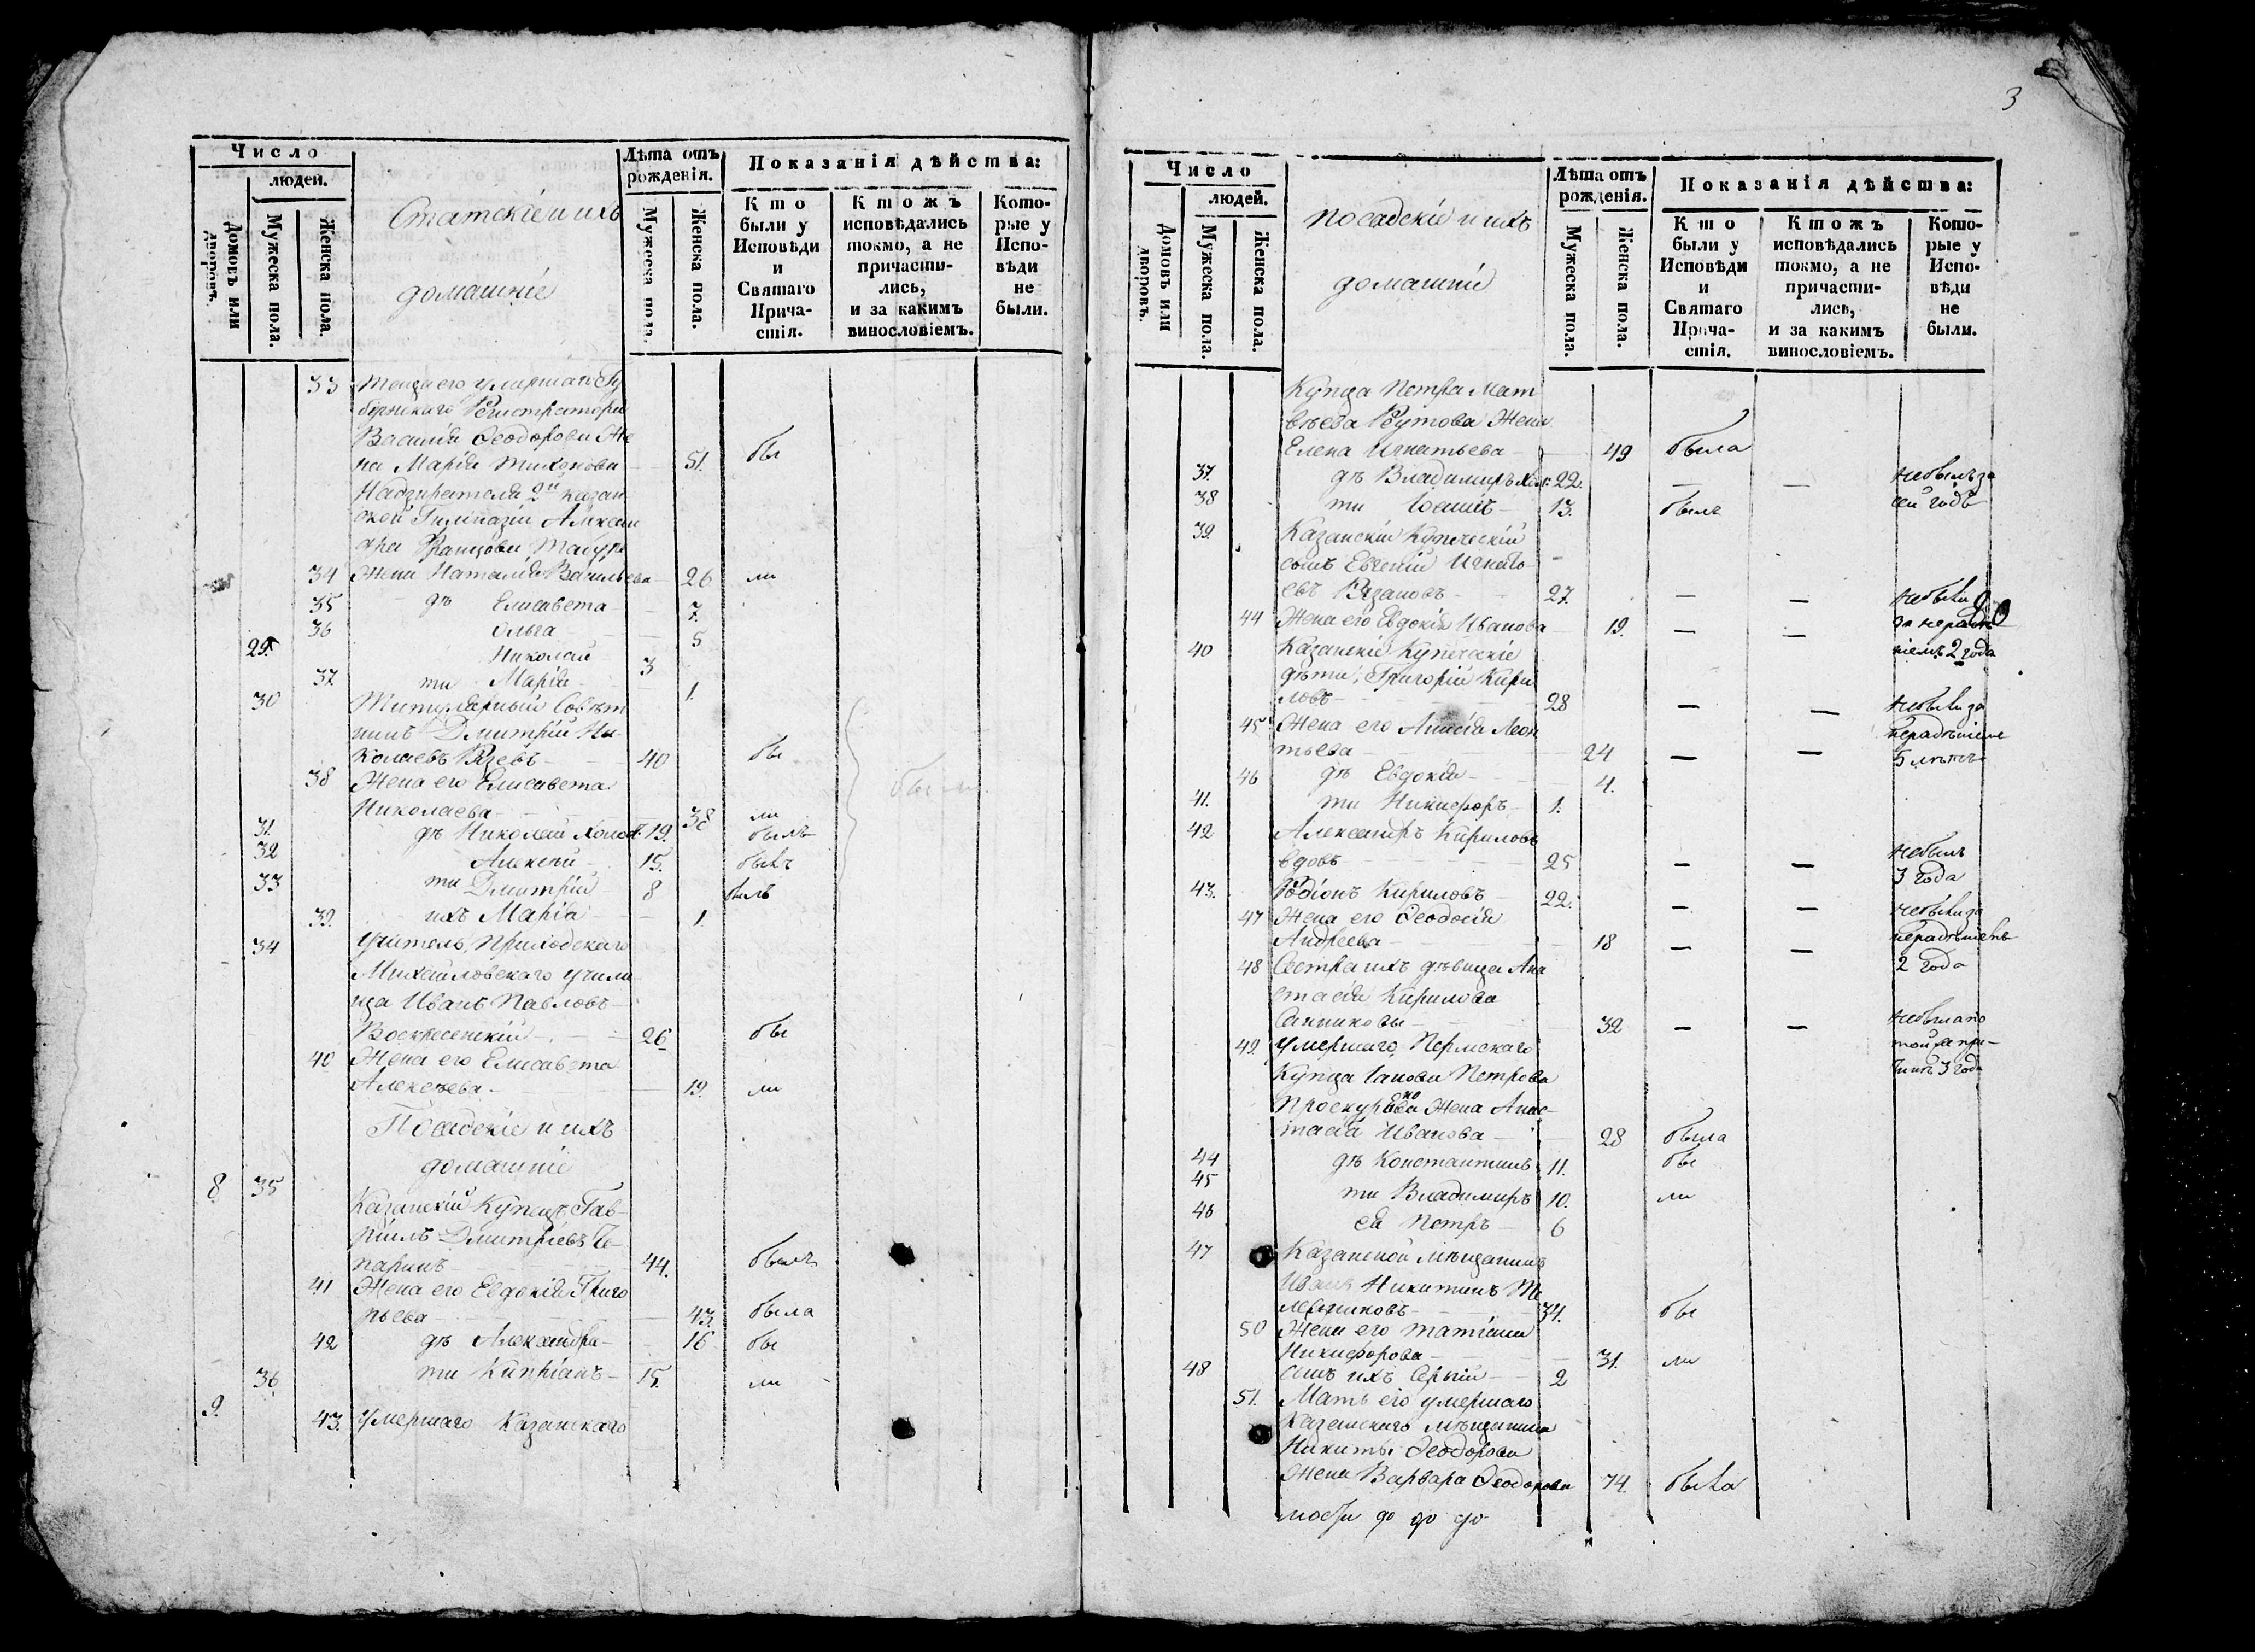 Число
людей.
Домовъ или дворовъ.
Мужеска пола.
Женска пола.
Статскіе и ихъ
домашніе
Лѣта отъ рожденія.
Мужеска пола.
Женска пола.
Показанія дѣйства:
Кто были у Исповѣди и Святаго Прича-стія.
Ктожъ исповѣдались токмо, а не причасти-лись, и за какимъ винословіемъ.
Кото-рые у Испо-вѣди не были.
33 Теща его умершаго Гу
бернскаго Регистратора
Василія Ѳеодорова Же
на Марія Тихонова 51. бы
Надзирателя 2й Казан
ской Гимназіи Алексан
дра
34 Жена Наталія Васильева 26 ли
35 дѣ Елисавета 7.
36 Ольга 5
29. Николай 3
37. ти Марія 1.
30 Титулярный Совѣт
никъ Дмитрій Ни-
колаевъ 40 бы
38 Жена его Елисавета
Николаева 38 ли
31. дѣ Николай холос: 19. былъ
32 Алексѣй 15. былъ
33 ти Дмитрій 8 былъ
39. ихъ Марія 1.
34 Учитель Приходскаго
Михайловскаго учили
ща Иванъ Павловъ
Воскресенскій 26 бы
40 Жена его Елисавета
Алексѣева 19. ли
Посадскіе и ихъ
домашніе
8 35 Казанскій Купецъ Гав-
ріилъ Дмитріевъ Че-
паринъ 44. былъ
41 Жена его Евдокія Григо
рьева 43. была
42 дѣ Александра 16 бы
36 ти Кипріанъ 15. ли
9. 43. Умершаго Казанскаго
3
Число
людей.
Домовъ или дворовъ.
Мужеска пола.
Женска пола.
посадскіе и ихъ
домашніи
Лѣта отъ рожденія.
Мужеска пола.
Женска пола.
Показанія дѣйства:
Кто были у Исповѣди и Святаго Прича-стія.
Ктожъ исповѣдались токмо, а не причасти-лись, и за какимъ винословіемъ.
Кото-рые у Испо-вѣди не были.
Купца Петра Мат
вѣева Реутова Жена
Елена Игнатьева 49 была
37. дѣ Владимиръ хол: 22. — — небылъ за
38 ти 13. былъ сей годъ
39. Казанскій Купеческій
сынъ Евгеній Игнать
евъ Рязановъ 27. — — небыли
44 Жена его Евдокія Иванова 19. — — за нерадѣ
40 Казанскіе Купеческіе ніемъ 2 года
дѣти, Григорій Кири
ловъ 28 — — небыли за
45 Жена его Анисія Леон нерадѣніемъ
тьева 24 — — 5 лѣтъ
46 дѣ Евдокія 4.
41. ти Никифоръ 1.
42 Александръ Кириловъ
вдовъ 25 — — небылъ
3 года
43. Родіонъ Кириловъ 22. — — небыли за
47 Жена его Ѳеодосія нерадѣніемъ
Андреева 18 — — 2 года
48 Сестра ихъ дѣвица Ана
стасія Кирилова
Санниковы 32 — — небыла по
49. Умершаго Пермскаго той же при-
Купца Іакова Петрова чинѣ 3 года
Жена Анас-
тасія Иванова 28 была
44 дѣ Константинъ 11. бы
45 ти Владимиръ 10. ли
46 ея Петръ 6
47 Казанской мѣщанинъ
Иванъ Никитинъ Ме
льниковъ 34. бы
50 Жена его Татіана
Никифорова 31. ли
48 Сынъ ихъ Сергій 2
51. Мать его умершаго
Казанскаго мѣщанина
Никиты Ѳеодорова
Жена Варвара Ѳеодорова 74. была